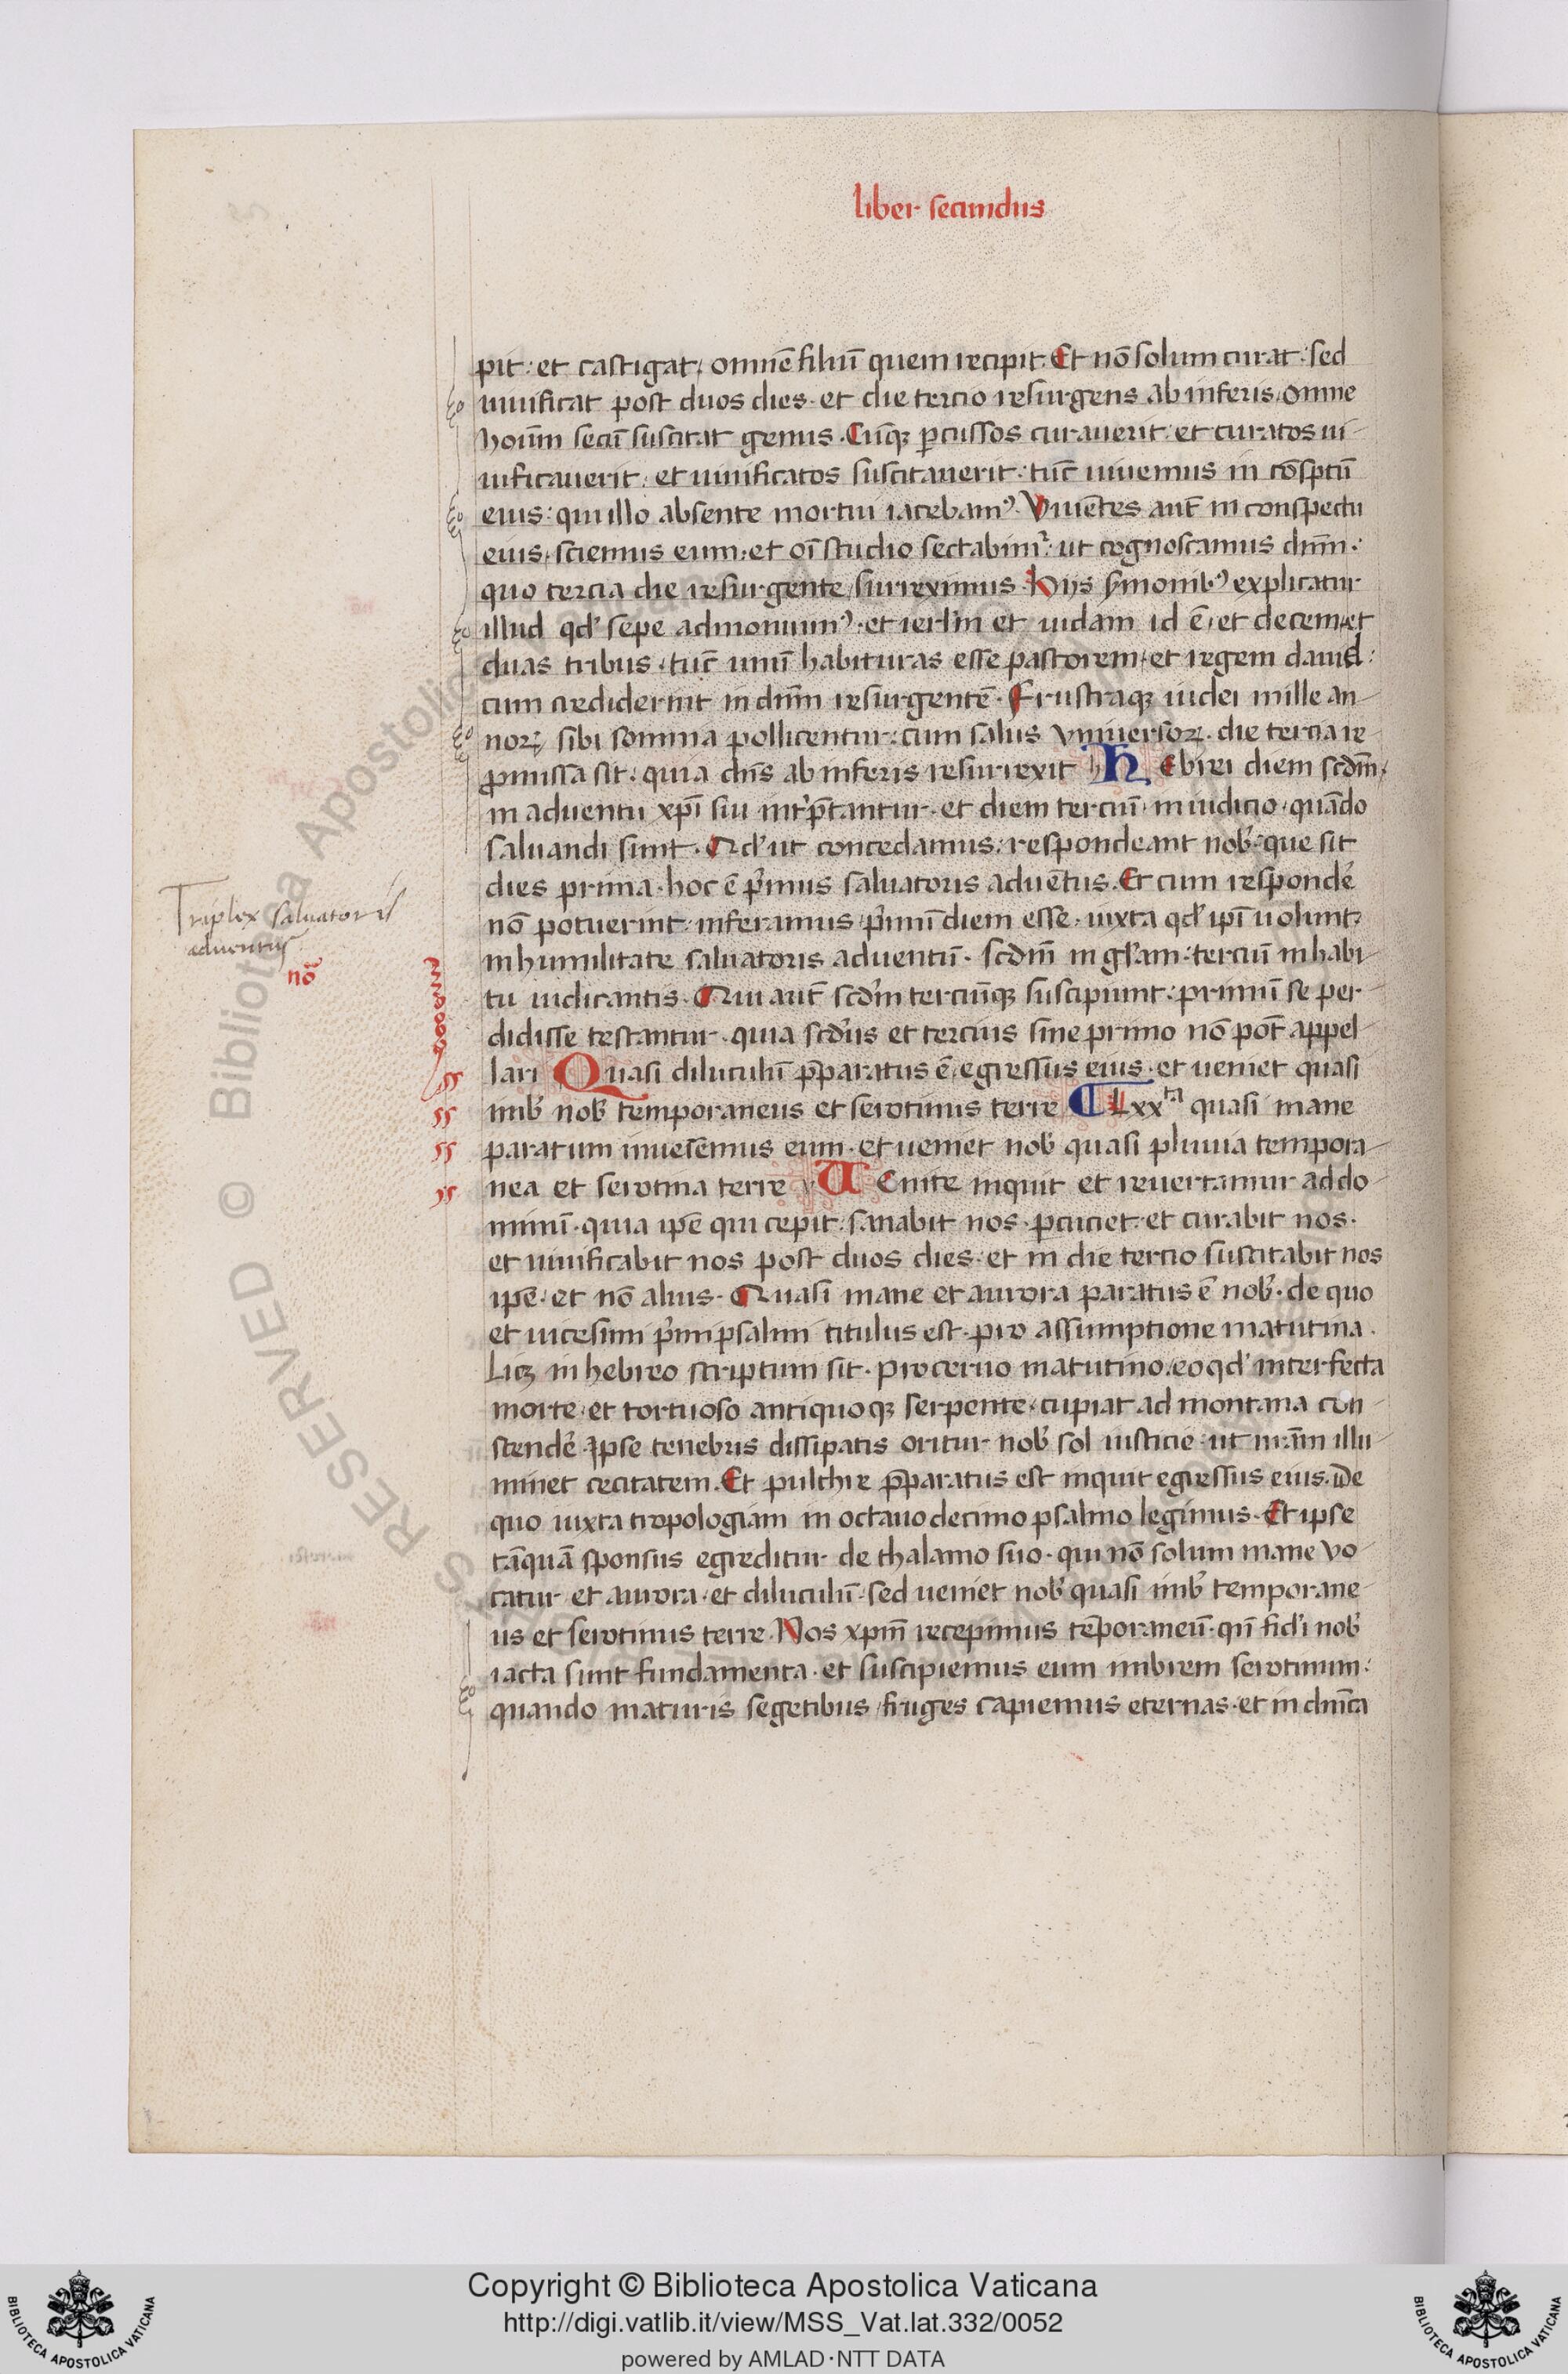 liber secundus
pit: et castigat, omnē filiū quem recipit. Et nō solum curat: sed
uiuificat post duos dies. et die tercio resurgens ab inferis, omne
hoīum secū suscitat genus. Cūqꝫ ꝑcussos curauerit. et curatos ui-
uificauerit: et uiuificatos suscitauerit: tūc uiuemus in cōsptū
eius: qui illo absente mortui iacebamꝰ. Viuētes aut̄ in conspectu
eius, sciemus eum: et oī studio sectabimᷣ: ut cognoscamus dnm̄:
quo tercia die resurgente, surreximus. Hijs ẜmonibꝰ explicatur
illud qđ sepe admonuimꝰ. et ierlꝉm et iudam id ē, et decem, et
duas tribus, tūc unū habituras esse pastorem, et regem dauid:
cum crediderint in dnm̄ resurgentē. Frustraqꝫ iudei mille an-
noꝝ, sibi somnia pollicentur: cum salus vniuersoꝝ. die tercia re
ꝓmissa sit. quia dn̄s ab inferis resurrexit Hebrei diem scdm̄,
in aduentu xpī sui int̕p̄tantur. et diem terciū, in iudicio, quādo
saluandi sunt. Qđ ut concedamus: respondeant nob̕: que sit
dies prima. hoc ē p̕mus saluatoris aduētus. Et cum respondē
nō potuerint: inferamus p̕mū diem esse, iuxta qđ ip̄i uolunt,
in humilitate saluatoris aduentū. scdm̄ in gl̕am: terciū in habi-
tu iudicantis. Qui aut̄ scd̕m terciūqꝫ suscipiunt: primū se per-
didisse testantur. quia scd̕us et tercius sine primo nō pot̄ appel-
lari Quasi diluculū p̄paratus ē egressus eius. et ueniet quasi
imb̕ nob̕ temporaneus et serotinus terre Lxxᵗᵃ quasi mane
paratum inueīemus eum. et ueniet nob̕ quasi pluuia tempora-
nea et serotina terre VEnite inquit et reuertamur ad do-
minū. quia ip̄e qui cepit: sanabit nos. ꝑcuciet: et curabit nos.
et uiuificabit nos post duos dies: et in die tercio suscitabit nos
ip̄e: et nō alius. Quasi mane et aurora paratus ē nob̕. de quo
et uicesimi p̕mi psalmi titulus est. pro assumptione matutina.
Licꝫ in hebreo scriptum sit. pro ceruo matutino. eo qđ interfecta
morte, et tortuoso antiquoqꝫ serpente, cupiat ad montana con-
scendē. Ipse tenebris dissipatis oritur nob̕ sol iusticie. ut nram̄ illu-
minet cecitatem. Et pulchre p̄paratus est inquit egressus eius. De
quo iuxta tropologiam in octauo decimo psalmo legimus. Et ipse
tāquā sponsus egreditur de thalamo suo. qui nō solum mane vo-
catur et aurora. et diluculū. sed ueniet nob̕ quasi imb̕ temporane-
us et serotinus terre. Nos xpm̄ recepimus tēporaneū. qn̄ fid̕i nob̕
iacta sunt fundamenta. et suscipiemus eum imbrem serotinum:
quando maturis segetibus, fruges capiemus eternas. et in dnīca
Triplex saluatoris
aduentus
nō
Copyright © Biblioteca Apostolica Vaticana
http://digi.vatlib.it/view/MSS_Vat.lat.332/0052
powered by AMLAD·NTT DATA
BIBLIOTECA APOSTOLICA VATICANA
BIBLIOTECA APOSTOLICA VATICANA